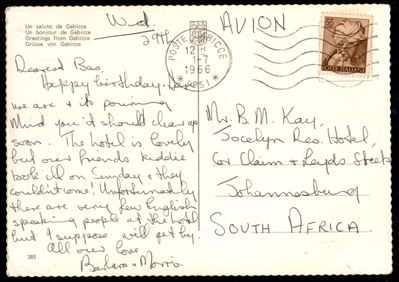 Un saluto da Gabicce
Un bonjour de Gabicce
Greetings from Gabicce
Grüsse von Gabicce
Wed.
29th
AVION
POSTE GABICCE
12
1-7
1966
(PS)
55
POSTE ITALIANE
Dearest Bas,
Happy birthday. Here
we are & its pouring
Mind you it should clear up
soon. The hotel is lovely
but our friends kiddie
took ill on Sunday & they
couldn't come! Unfortunately
there are very few English
speaking people at the hotel
but I suppose will get by.
All our love
Barbara & Morris.
Mr. B. M. Kay,
Jocelyn Res. Hotel,
Cor Claim & Leyds Streets
Johannesburg
SOUTH AFRICA.
385